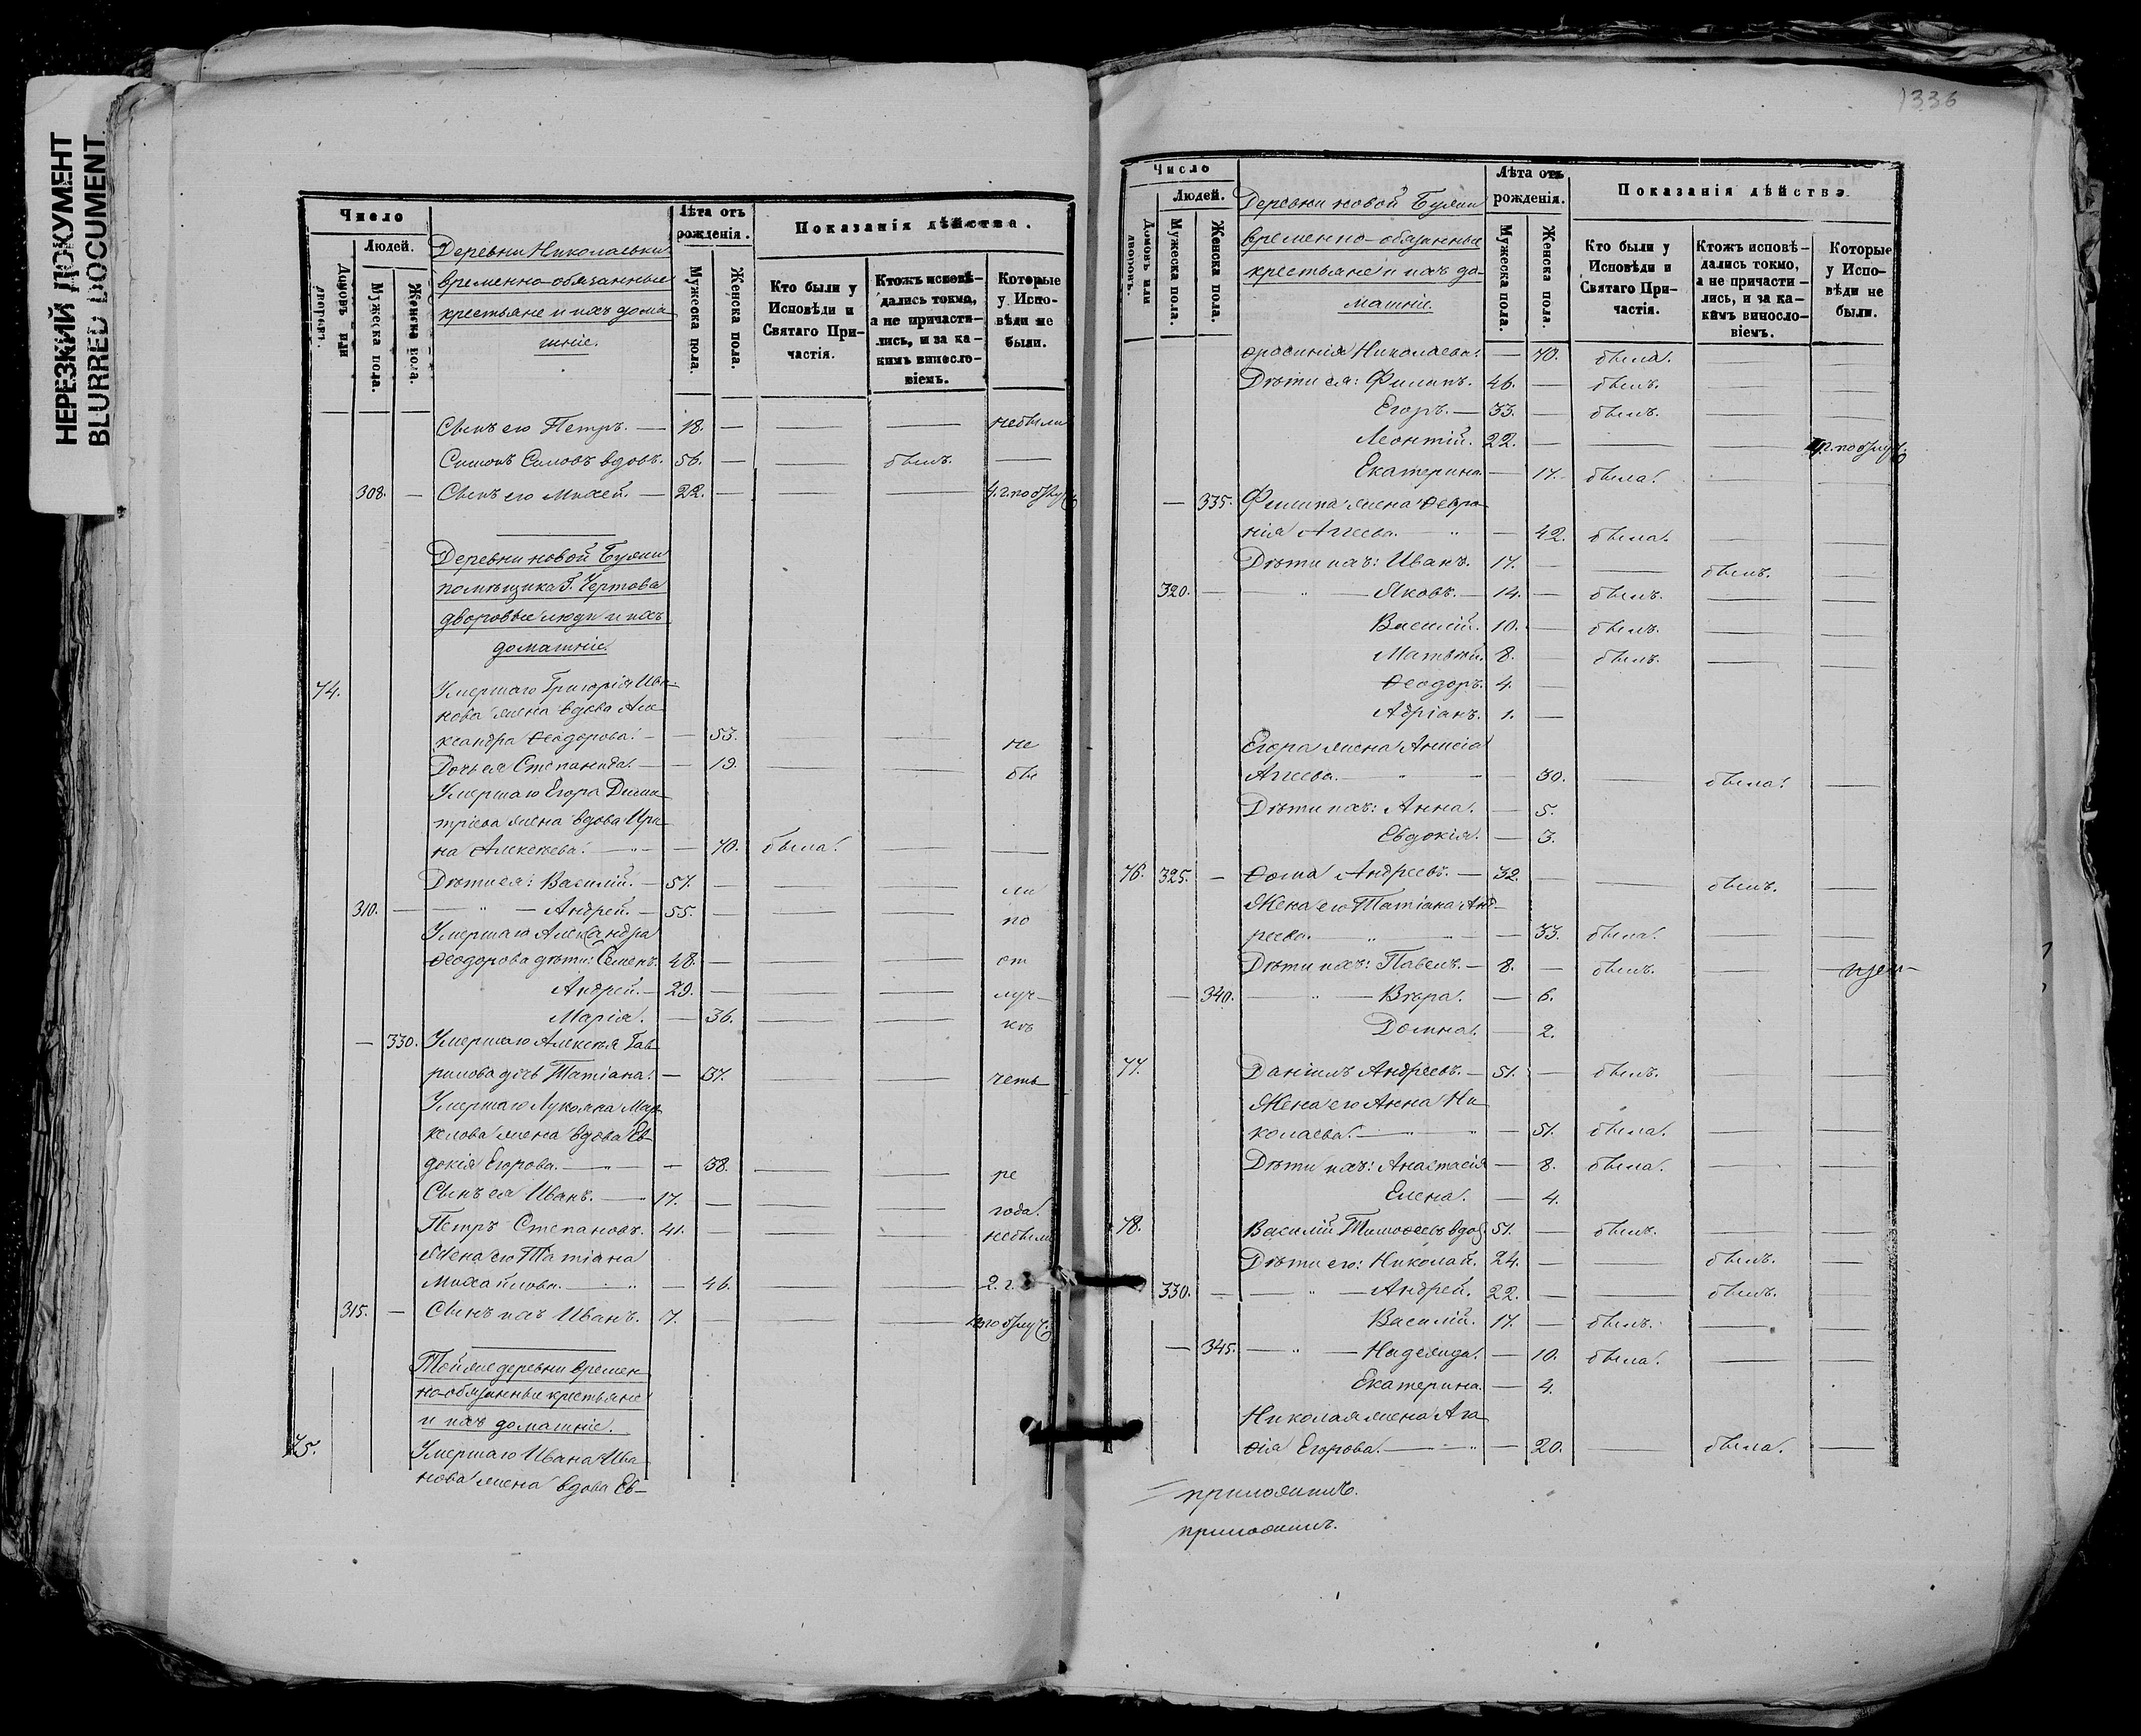 НЕРЕЗКИЙ ДОКУМЕНТ
BLURRED DOCUMENT.
Число
Людей.
Домовъ или дворовъ.
Мужеска пола.
Женска пола.
Деревни Николаевки
временно-обязанные
крестьяне и ихъ дома
шніе.
Лѣта отъ рожденія.
Мужеска пола.
Женска пола.
Показанія дѣйства.
Кто были у Исповѣди и Святаго При-частія.
Ктожъ исповѣ-дались токмо, а не причасти-лись, и за ка-кимъ винословіемъ.
Которые у Испо-вѣди не были.
Сынъ его Петръ. — 18. — — — не были
Симонъ Силовъ вдовъ. 56. — — былъ. —
308. — Сынъ его Мокей. — 22. — — — 4. г. по отлуч.
Деревни новой Буяни
помѣщика Г. Чертова
дворовые люди и ихъ
домашніе.
74. Умершаго Григорія Ива-
нова жена вдова Але-
ксандра Ѳеодорова. — — 53. — — не
Дочь ея Степанида. — — 19. — — бы
Умершаго Егора Дими-
тріева жена вдова Ири-
на Алексѣева. — — 70. была. — —
Дѣти ея: Василій. — 57. — — — ли
310. — — „ — Андрей. — 55. — — — по
Умершаго Александра
Ѳеодорова дѣти: Семенъ. 48. — — — от
Андрей. — 29. — — — луч-
Марія. — 36. — — кѣ
— 330. Умершаго Алексѣя Гав-
рилова дочь Татіана. — 37. — — четы
Умершаго Лукояна Мар-
келова жена вдова Ев-
докія Егорова. — „ — — 38. — — ре
Сынъ ея Иванъ. — „ 17. — — — года.
Петръ Степановъ. 41. — — — не были
Жена его Татіана
Михайлова. — „ — 46. — — 2. г.
315. — Сынъ ихъ Иванъ. 7. — — — по отлуч.
Той же деревни времен-
но-обязанные крестьяне
и ихъ домашніе.
75. Умершаго Ивана Ива-
нова жена вдова Ев-
1336
Число
Людей.
Домовъ или дворовъ.
Мужеска пола.
Женска пола.
Деревни новой Буяни
временно-обязанные
крестьяне и ихъ до-
машніе.
Лѣта отъ рожденія.
Мужеска пола.
Женска пола.
Показанія дѣйства
Кто были у Исповѣди и Святаго При-частія.
Ктожъ исповѣ-дались токмо, а не причасти-лись, и за ка-кимъ винословіемъ.
Которые у Испо-вѣди не были.
фросинія Николаева. — 70. была. — —
Дѣти ея: Филипъ. 46. — былъ. — —
Егоръ. — 33. — былъ. — —
Леонтій. 22. — — — г. по отлуч.
Екатерина. — 17. была. — —
— 335. Филипа жена Ѳевро-
нія Агеева. „ — 42. была. — —
Дѣти ихъ: Иванъ. 17. — — былъ. —
320. — — „ — Яковъ. — 14. — былъ. — —
Василій. 10. — былъ. — —
Матвей. 8. — былъ. — —
Ѳеодоръ. 4. —
Адріанъ. 1. —
Егора жена Анисія
Агеева. — „ — — 30. — была.
Дѣти ихъ: Анна. — 5.
Евдокія. — 3.
76. 325. — Ѳома Андреевъ. — 32. — — былъ. —
Жена его Татіана Анд-
реева. — „ — — 33. была. — —
Дѣти ихъ: Павелъ. — 8. — былъ. — —
— 340. — „ — Вѣра. — 6.
Домна. — 2.
77. Даніилъ Андреевъ. — 51. — былъ.
Жена его Анна Ни-
колаева. — „ — „ — 51. была. — —
Дѣти ихъ: Анастасія — 8. была. — —
Елена. — 4.
78. Василій Тимоѳеевъ вдов. 51. — былъ. — —
Дѣти его: Николай. 24. — — былъ.
330. — — „ — Андрей. 22. — — былъ.
Василій. 17. — былъ. — —
— 345. — „ — Надежда. — 10. была. — —
Екатерина. — 4.
Николая жена Ага-
ѳія Егорова. — „ — 20. — была. —